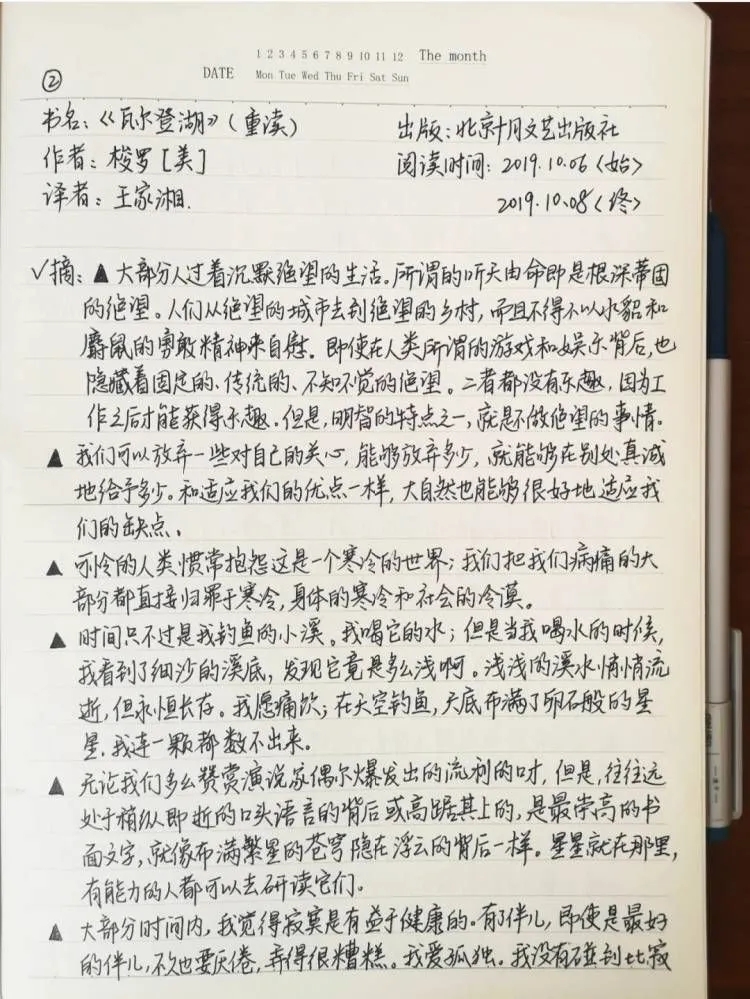 ②
1 2 3 4 5 6 7 8 9 10 11 12 The month
DATE Mon Tue Wed Thu Fri Sat Sun
书名:《瓦尔登湖》(重读) 出版:北京十月文艺出版社
作者:梭罗[美] 阅读时间:2019.10.06<始>
译者:王家湘. 2019.10.08<终>
✓摘:▲大部分人过着沉默绝望的生活。所谓的听天由命即是根深蒂固
的绝望。人们从绝望的城市去到绝望的乡村,而且不得不以水貂和
麝鼠的勇敢精神来自慰。即使在人类所谓的游戏和娱乐背后,也
隐藏着固定的、传统的、不知不觉的绝望。二者都没有乐趣,因为工
作之后才能获得乐趣。但是,明智的特点之一,就是不做绝望的事情。
▲ 我们可以放弃一些对自己的关心,能够放弃多少,就能够在别处真诚
地给予多少。和适应我们的优点一样,大自然也能够很好地适应我
们的缺点、
▲ 可怜的人类惯常抱怨这是一个寒冷的世界;我们把我们病痛的大
部分都直接归罪于寒冷,身体的寒冷和社会的冷漠。
▲ 时间只不过是我钓鱼的小溪。我喝它的水;但是当我喝水的时候,
我看到了细沙的溪底,发现它竟是多么浅啊。浅浅的溪水悄悄流
逝,但永恒长存。我愿痛饮;在天空钓鱼,天底布满了卵石般的星
星.我连一颗都数不出来。
▲ 无论我们多么赞赏演说家偶尔爆发出的流利的口才,但是,往往远
处于稍纵即逝的口头语言的背后或高踞其上的,是最崇高的书
面文字,就像布满繁星的苍穹隐在浮云的背后一样。星星就在那里,
有能力的人都可以去研读它们。
▲ 大部分时间内,我觉得寂寞是有益于健康的。有了伴儿,即使是最好
的伴儿,不久也要厌倦,弄得很糟糕。我爱孤独。我没有碰到比寂